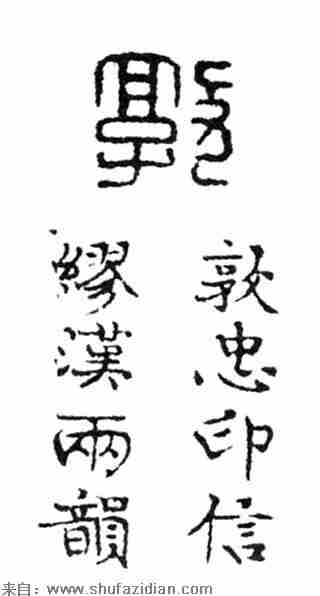 敦
敦忠印信
繆漢兩韻
来自：www.shufazidian.com